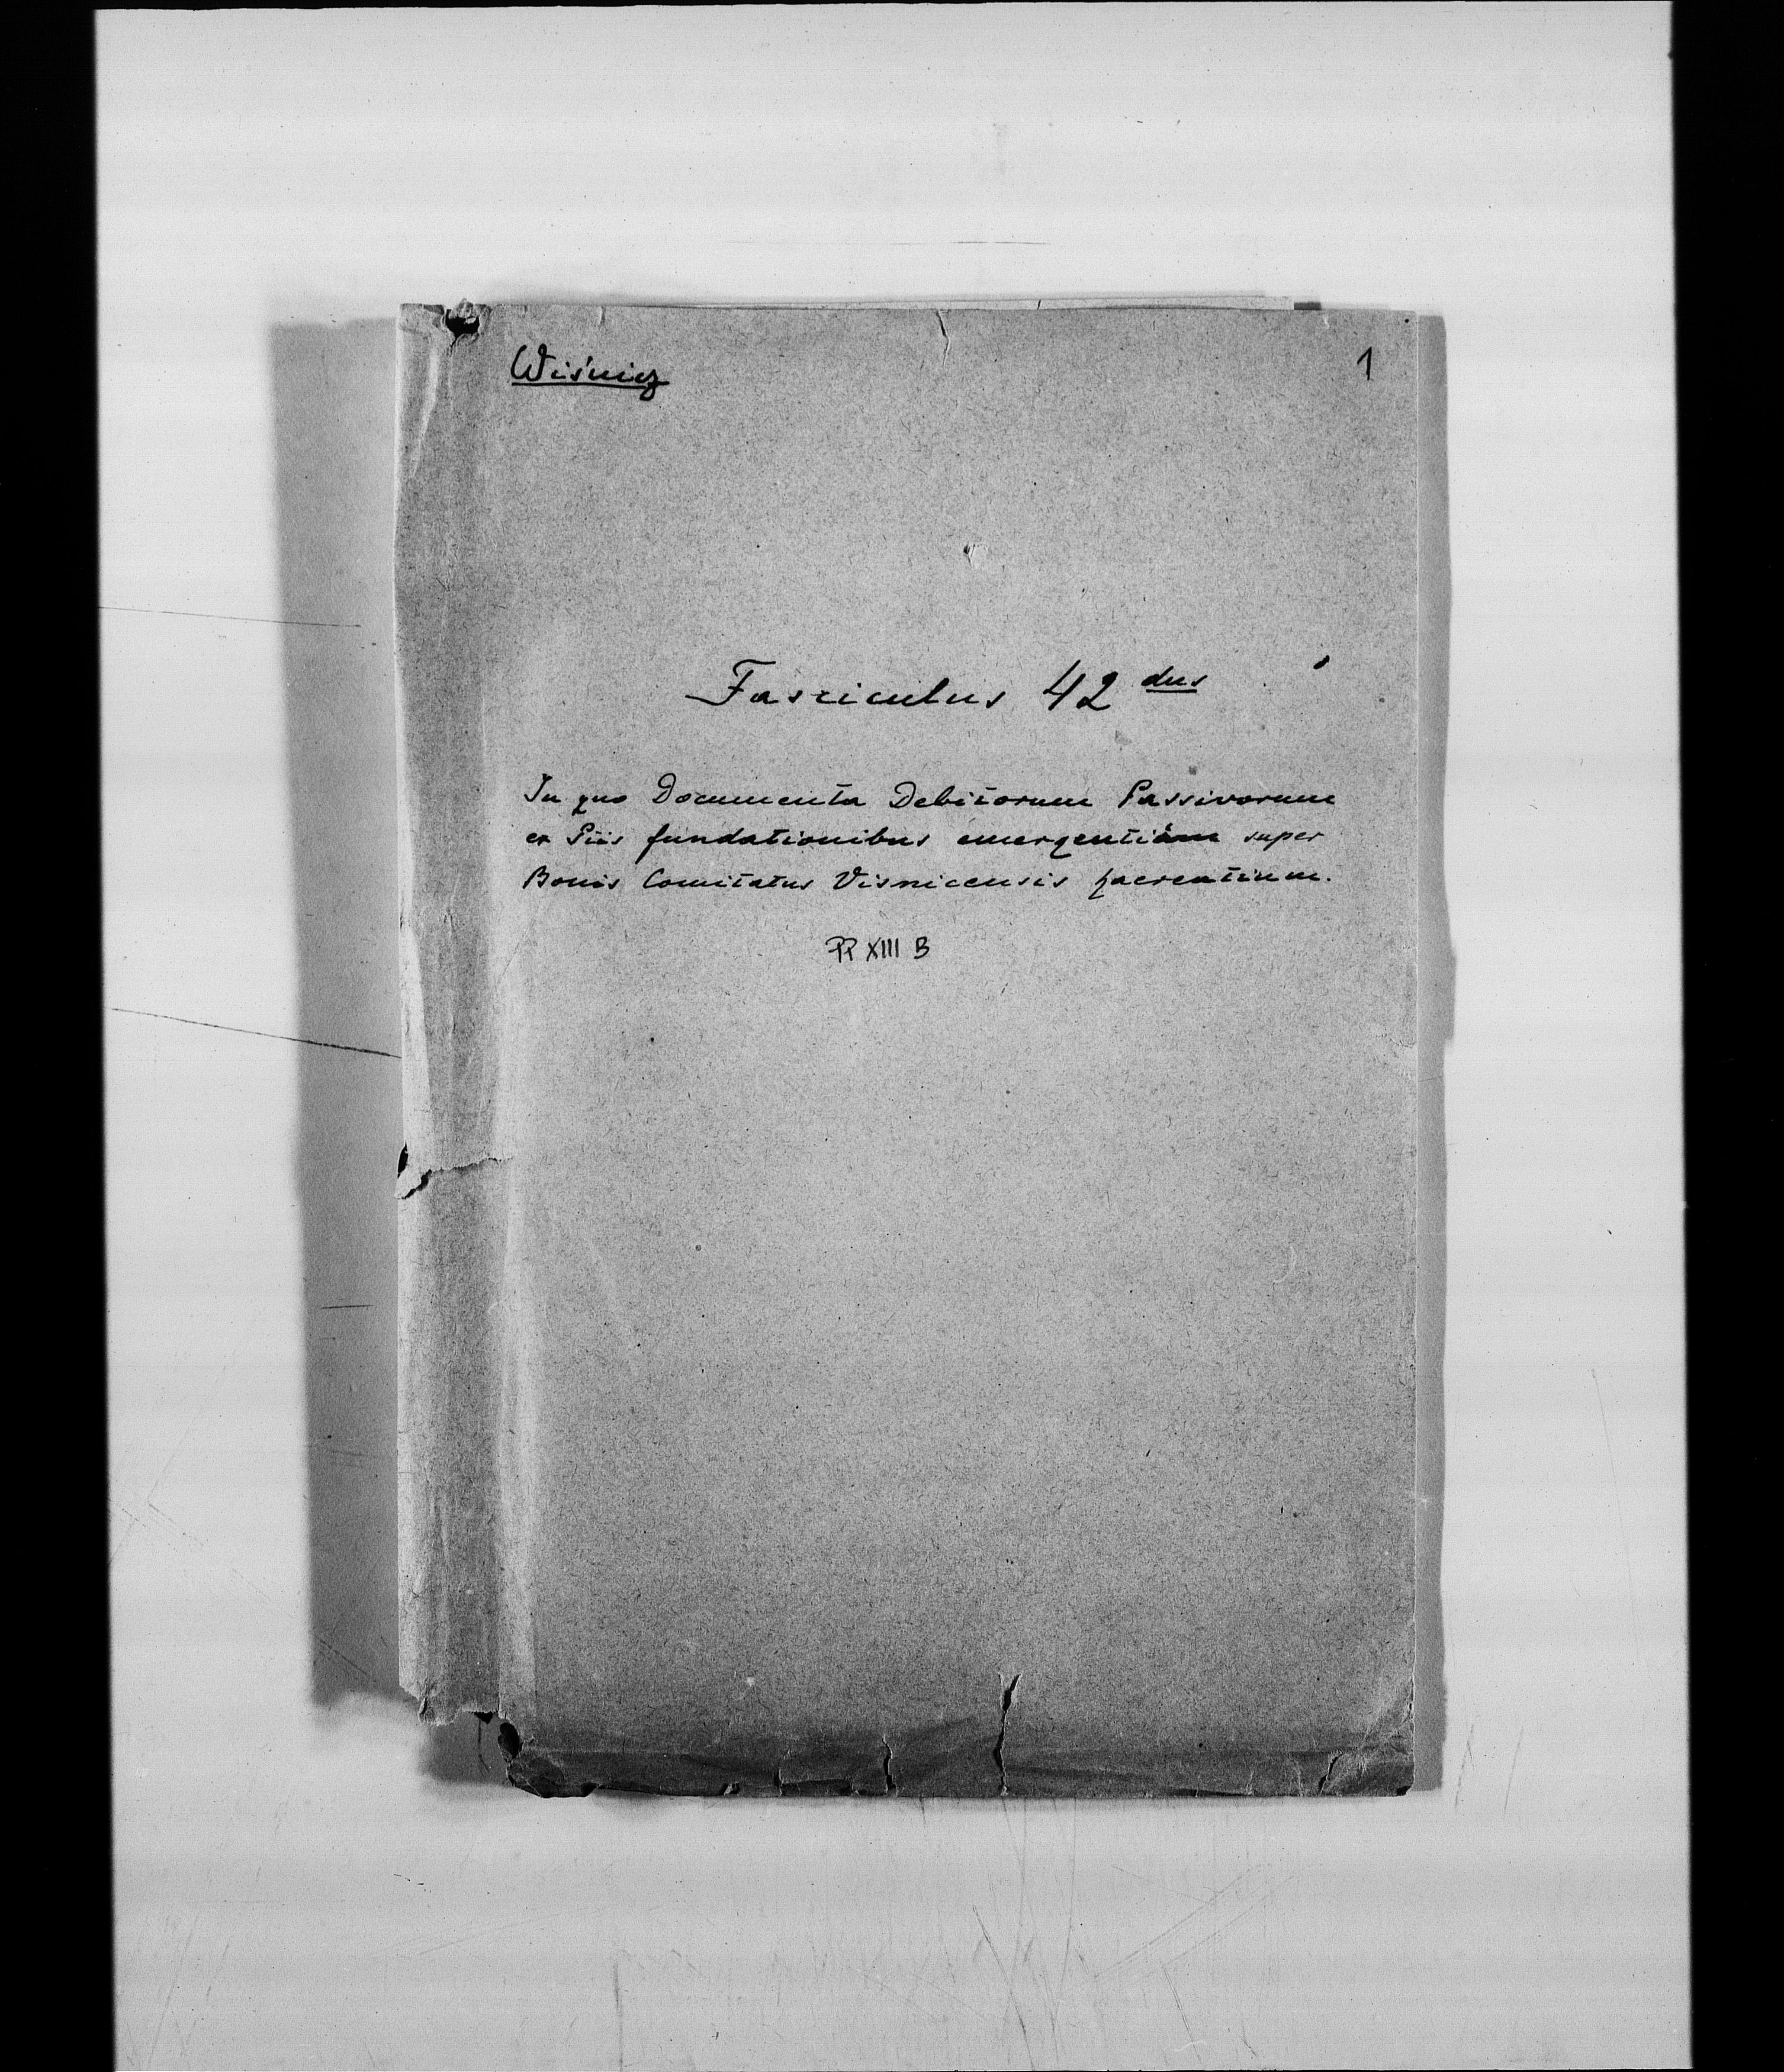 Wiśnicz
1
Fasciculus 42 dus
In quo Documenta Debitorum Passivorum
ex Piis fundationibus emergentium super
Bonis Comitatus Visnicensis haerentium.
PP XIII B